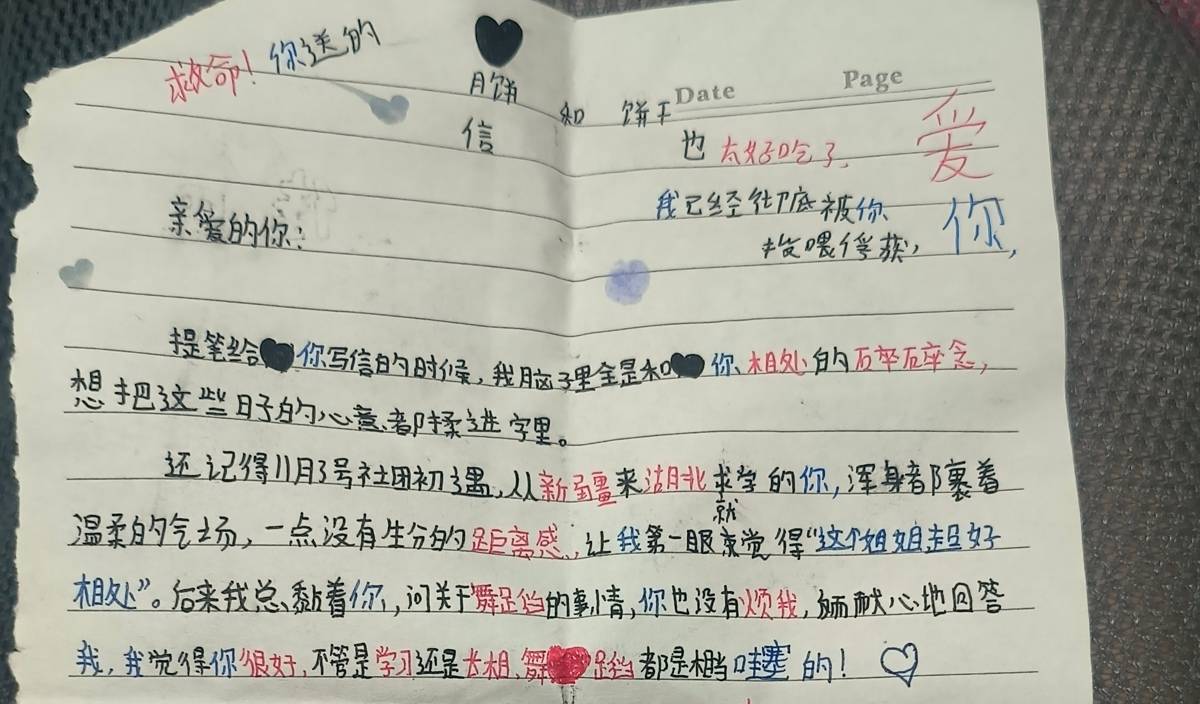 救命！你送的
月饼 和 饼干
信
Date Page
也 太好吃了.
爱
你,
我已经彻底被你
投喂俘获,
亲爱的你：
提笔给你写信的时候，我脑子里全是和你相处的碎碎念，
想把这些日子的心意都揉进字里。
还记得11月3号社团初遇，从新疆来湖北求学的你，浑身都裹着
温柔的气场，一点没有生分的距离感，让我第一眼就觉得“这个姐姐超好
相处”。后来我总黏着你，问关于舞蹈的事情，你也没有烦我，耐心地回答
我，我觉得你很好，不管是学习还是长相，舞蹈都是相当哇塞的！